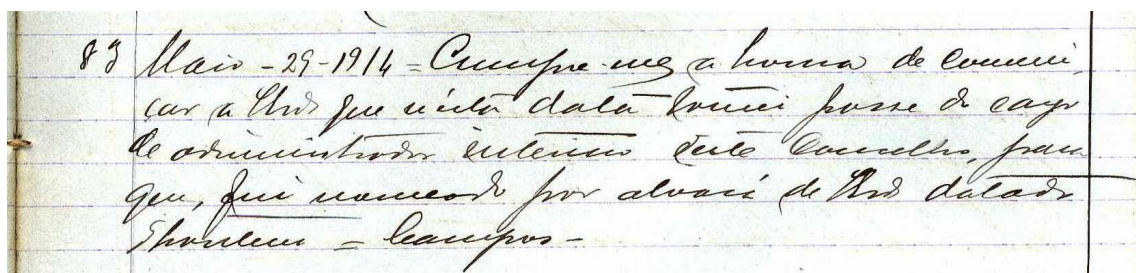 83 Maio - 29-1914 = Cumpre-me a honra de communi-
car a que n'esta data tomei posse do cargo
de administrador interino d'este Concelho, para
que, fui nomeado por alvará de datado
d'hontem = Campos -